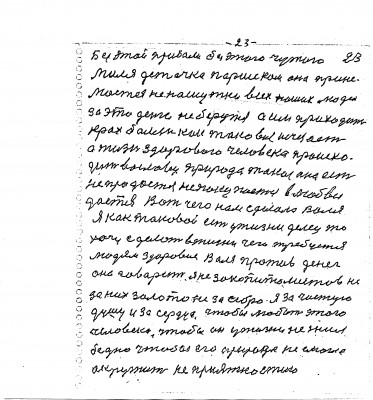 - 23 -
Без этой прибали без этого чужого 23
Миля деточка париском она прине-
мается не нашутки всех наших людей
за это дело не берутся а им приходит
крах болезнком таковые исчезает
а жизнь здорового человека происхо-
дит природа такое она ест
не продостся не покупается в любви
дается Вот чего нам сделало Валя
Я как таковой ест у жизни делец то
хочу сделат в жизни чего требуется
людям здоровия Валя против денег
она говорит. я не за копитолистов не
за них золото не за сребро. Я за чистую
душу и за сердца, чтобы любит этого
человека, чтобы он у жизни не жил
бедно чтобы его природа не смогла
окружит не приятностию